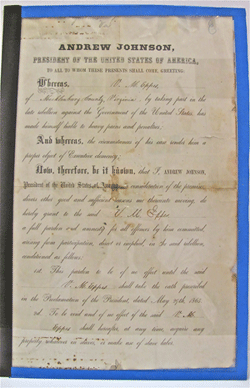 ANDREW JOHNSON,
PRESIDENT OF THE UNITED STATES OF AMERICA,
TO ALL TO WHOM THESE PRESENTS SHALL COME, GREETING:
Whereas, P. M. Epps
of Mecklenburg County, Virginia, by taking part in the
late rebellion against the Government of the United States, has
made himself liable to heavy pains and penalties;
And whereas, the circumstances of his case render him a
proper object of Executive clemency;
Now, therefore, be it known, that I, ANDREW JOHNSON,
President of the United States of America, in consideration of the premises,
divers other good and sufficient reasons me thereunto moving, do
hereby grant to the said M. Epps
a full pardon and amnesty for all offences by him committed,
arising from participation, direct or implied, in the said rebellion,
conditioned as follows:
1st. This pardon to be of no effect until the said
P. M. Epps shall take the oath prescribed
in the Proclamation of the President, dated May 29th, 1865.
2d. To be void and of no effect if the said P. M.
Epps shall hereafter, at any time, acquire any
property whatever in slaves, or make use of slave labor.